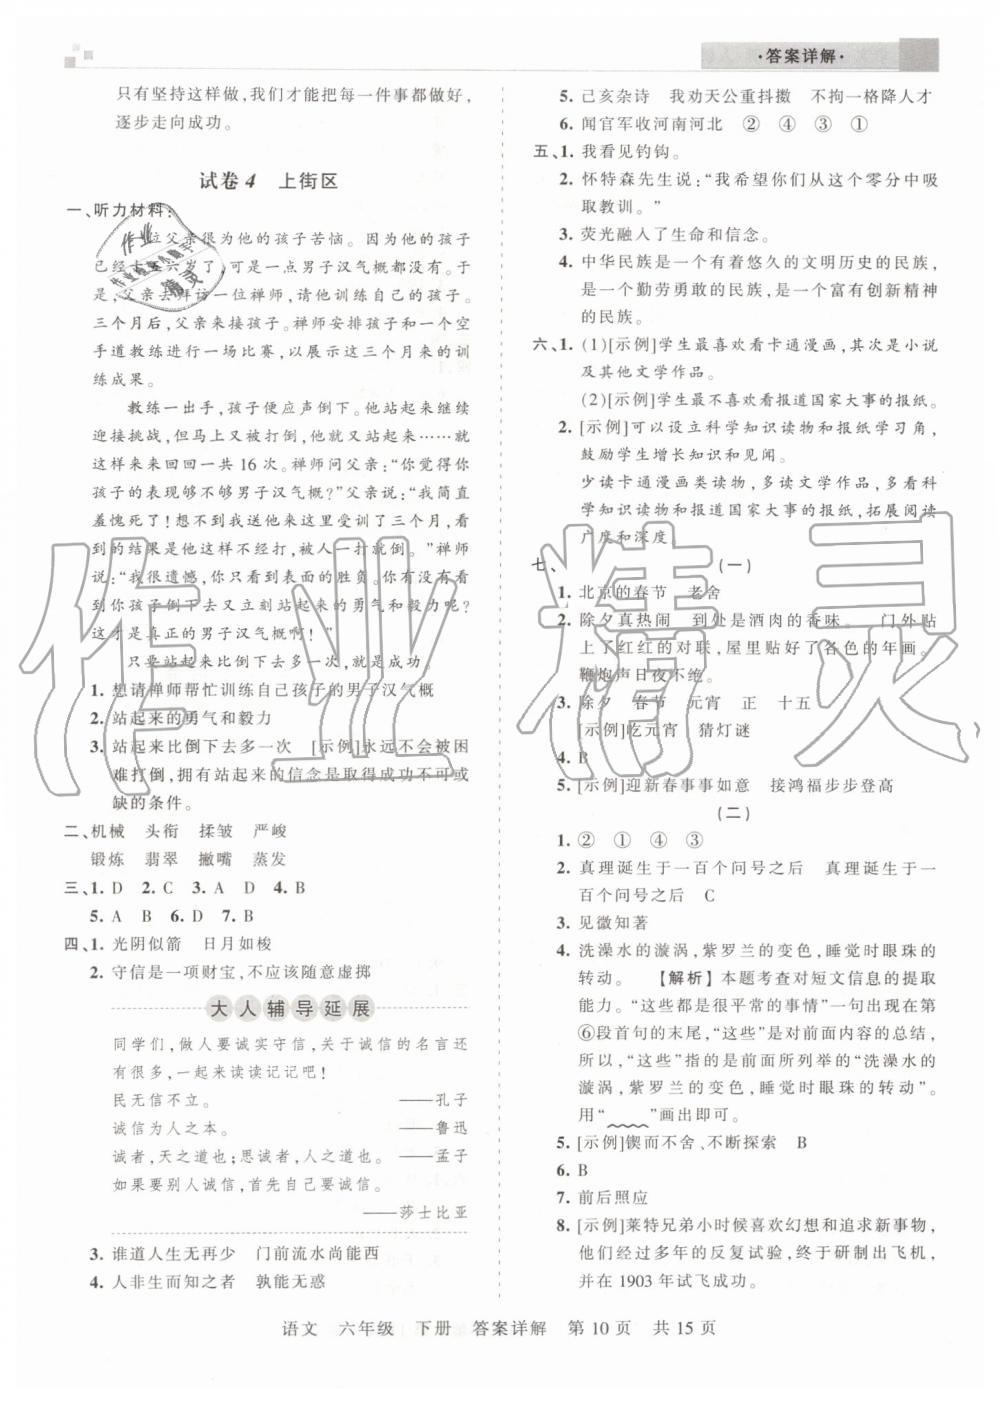 ·答案详解·
只有坚持这样做,我们才能把每一件事都做好,
逐步走向成功。
试卷4 上街区
一、听力材料:
一位父亲很为他的孩子苦恼。因为他的孩子
已经十五六岁了,可是一点男子汉气概都没有。于
是,父亲去拜访一位禅师,请他训练自己的孩子。
三个月后,父亲来接孩子。禅师安排孩子和一个空
手道教练进行一场比赛,以展示这三个月来的训
练成果。
教练一出手,孩子便应声倒下。他站起来继续
迎接挑战,但马上又被打倒,他就又站起来……就
这样来来回回一共16次。禅师问父亲:“你觉得你
孩子的表现够不够男子汉气概?”父亲说:“我简直
羞愧死了!想不到我送他来这里受训了三个月,看
到的结果是他这样不经打,被打一下就倒。”禅师
说:“我很遗憾,你只看到了表面的胜负。你有没有看
到你孩子倒下去又立刻站起来的勇气和毅力呢?
这才是真正的男子汉气概啊!”
只要站起来比倒下去多一次,就是成功。
1. 想请禅师帮忙训练自己孩子的男子汉气概
2. 站起来的勇气和毅力
3. 站起来比倒下去多一次 [示例]永远不会被困
难打倒,拥有站起来的信念是取得成功不可或
缺的条件。
二、机械 头衔 揉皱 严峻
锻炼 翡翠 撇嘴 蒸发
三、1. D 2. C 3. A D 4. B
5. A B 6. D 7. B
四、1. 光阴似箭 日月如梭
2. 守信是一项财宝,不应该随意虚掷
大人辅导延展
同学们,做人要诚实守信,关于诚信的名言还
有很多,一起来读读记记吧!
民无信不立。 ——孔子
诚信为人之本。 ——鲁迅
诚者,天之道也;思诚者,人之道也。 ——孟子
如果要别人诚信,首先自己要诚信。
——莎士比亚
3. 谁道人生无再少 门前流水尚能西
4. 人非生而知之者 孰能无惑
5. 己亥杂诗 我劝天公重抖擞 不拘一格降人才
6. 闻官军收河南河北 ② ④ ③ ①
五、1. 我看见钓钩。
2. 怀特森先生说:“我希望你们从这个零分中吸
取教训。”
3. 荧光融入了生命和信念。
4. 中华民族是一个有着悠久的文明历史的民族,
是一个勤劳勇敢的民族,是一个富有创新精神
的民族。
六、1. (1)[示例]学生最喜欢看卡通漫画,其次是小说
及其他文学作品。
(2)[示例]学生最不喜欢看报道国家大事的报纸。
2. [示例]可以设立科学知识读物和报纸学习角,
鼓励学生增长知识和见闻。
少读卡通漫画类读物,多读文学作品,多看科
学知识读物和报道国家大事的报纸,拓展阅读
广度和深度。
七、 (一)
1. 北京的春节 老舍
2. 除夕真热闹 到处是酒肉的香味。 门外贴
上了红红的对联,屋里贴好了各色的年画。
鞭炮声日夜不绝。
3. 除夕 春节 元宵 正 十五
[示例]吃元宵 猜灯谜
4. B
5. [示例]迎新春事事如意 接鸿福步步登高
(二)
1. ② ① ④ ③
2. 真理诞生于一百个问号之后 真理诞生于一
百个问号之后 C
3. 见微知著
4. 洗澡水的漩涡,紫罗兰的变色,睡觉时眼珠的
转动。 【解析】本题考查对短文信息的提取
能力。“这些都是很平常的事情”一句出现在第
⑥段首句的末尾,“这些”是对前面内容的总结,
所以,“这些”指的是前面所列举的“洗澡水的
漩涡,紫罗兰的变色,睡觉时眼珠的转动”。
用“﹏﹏”画出即可。
5. [示例]锲而不舍、不断探索 B
6. B
7. 前后照应
8. [示例]莱特兄弟小时候喜欢幻想和追求新事物,
他们经过多年的反复试验,终于研制出飞机,
并在1903年试飞成功。
语文 六年级 下册 答案详解 第10页 共15页
作业精灵